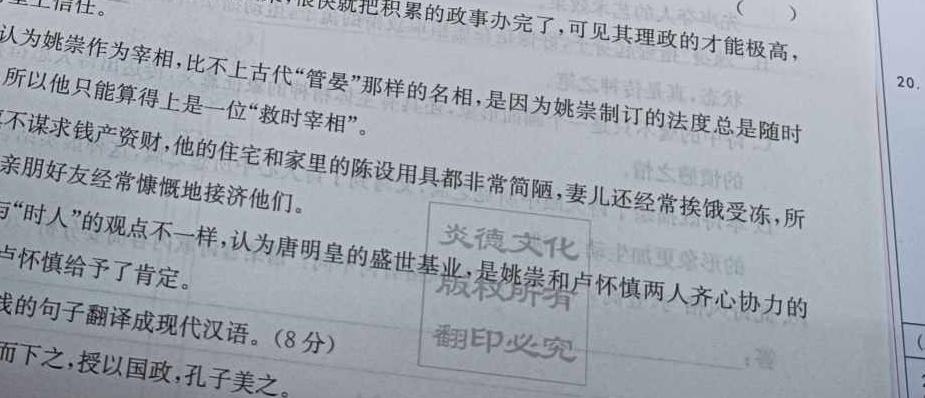 (　　)
很快就把积累的政事办完了,可见其理政的才能极高,
信任。
认为姚崇作为宰相,比不上古代“管晏”那样的名相,是因为姚崇制订的法度总是随时
20.
所以他只能算得上是一位“救时宰相”。
不谋求钱产资财,他的住宅和家里的陈设用具都非常简陋,妻儿还经常挨饿受冻,所
亲朋好友经常慷慨地接济他们。
与“时人”的观点不一样,认为唐明皇的盛世基业,是姚崇和卢怀慎两人齐心协力的
卢怀慎给予了肯定。
线的句子翻译成现代汉语。(8分)
而下之,授以国政,孔子美之。
炎德文化
版权所有
翻印必究